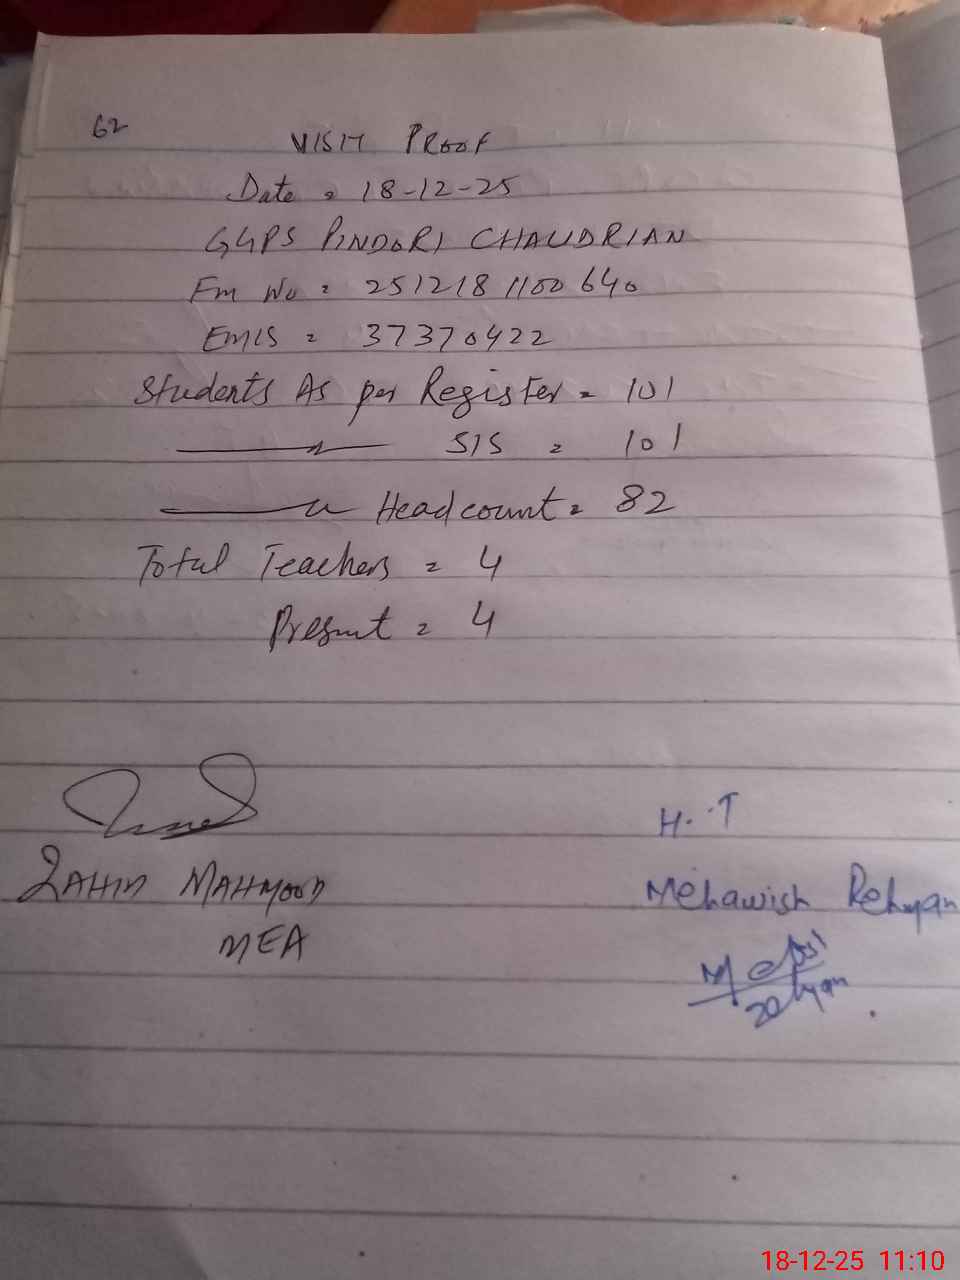 62
VISIT PROOF
Date = 18-12-25
GGPS PINDORI CHAUDRIAN
Fm No = 2512181100640
EMIS = 37370422
Students As per Register = 101
SIS = 101
Headcount = 82
Total Teachers = 4
Present = 4
H.T
MAHMOOD
Mehawish Rehman
MEA
18-12-25 11:10